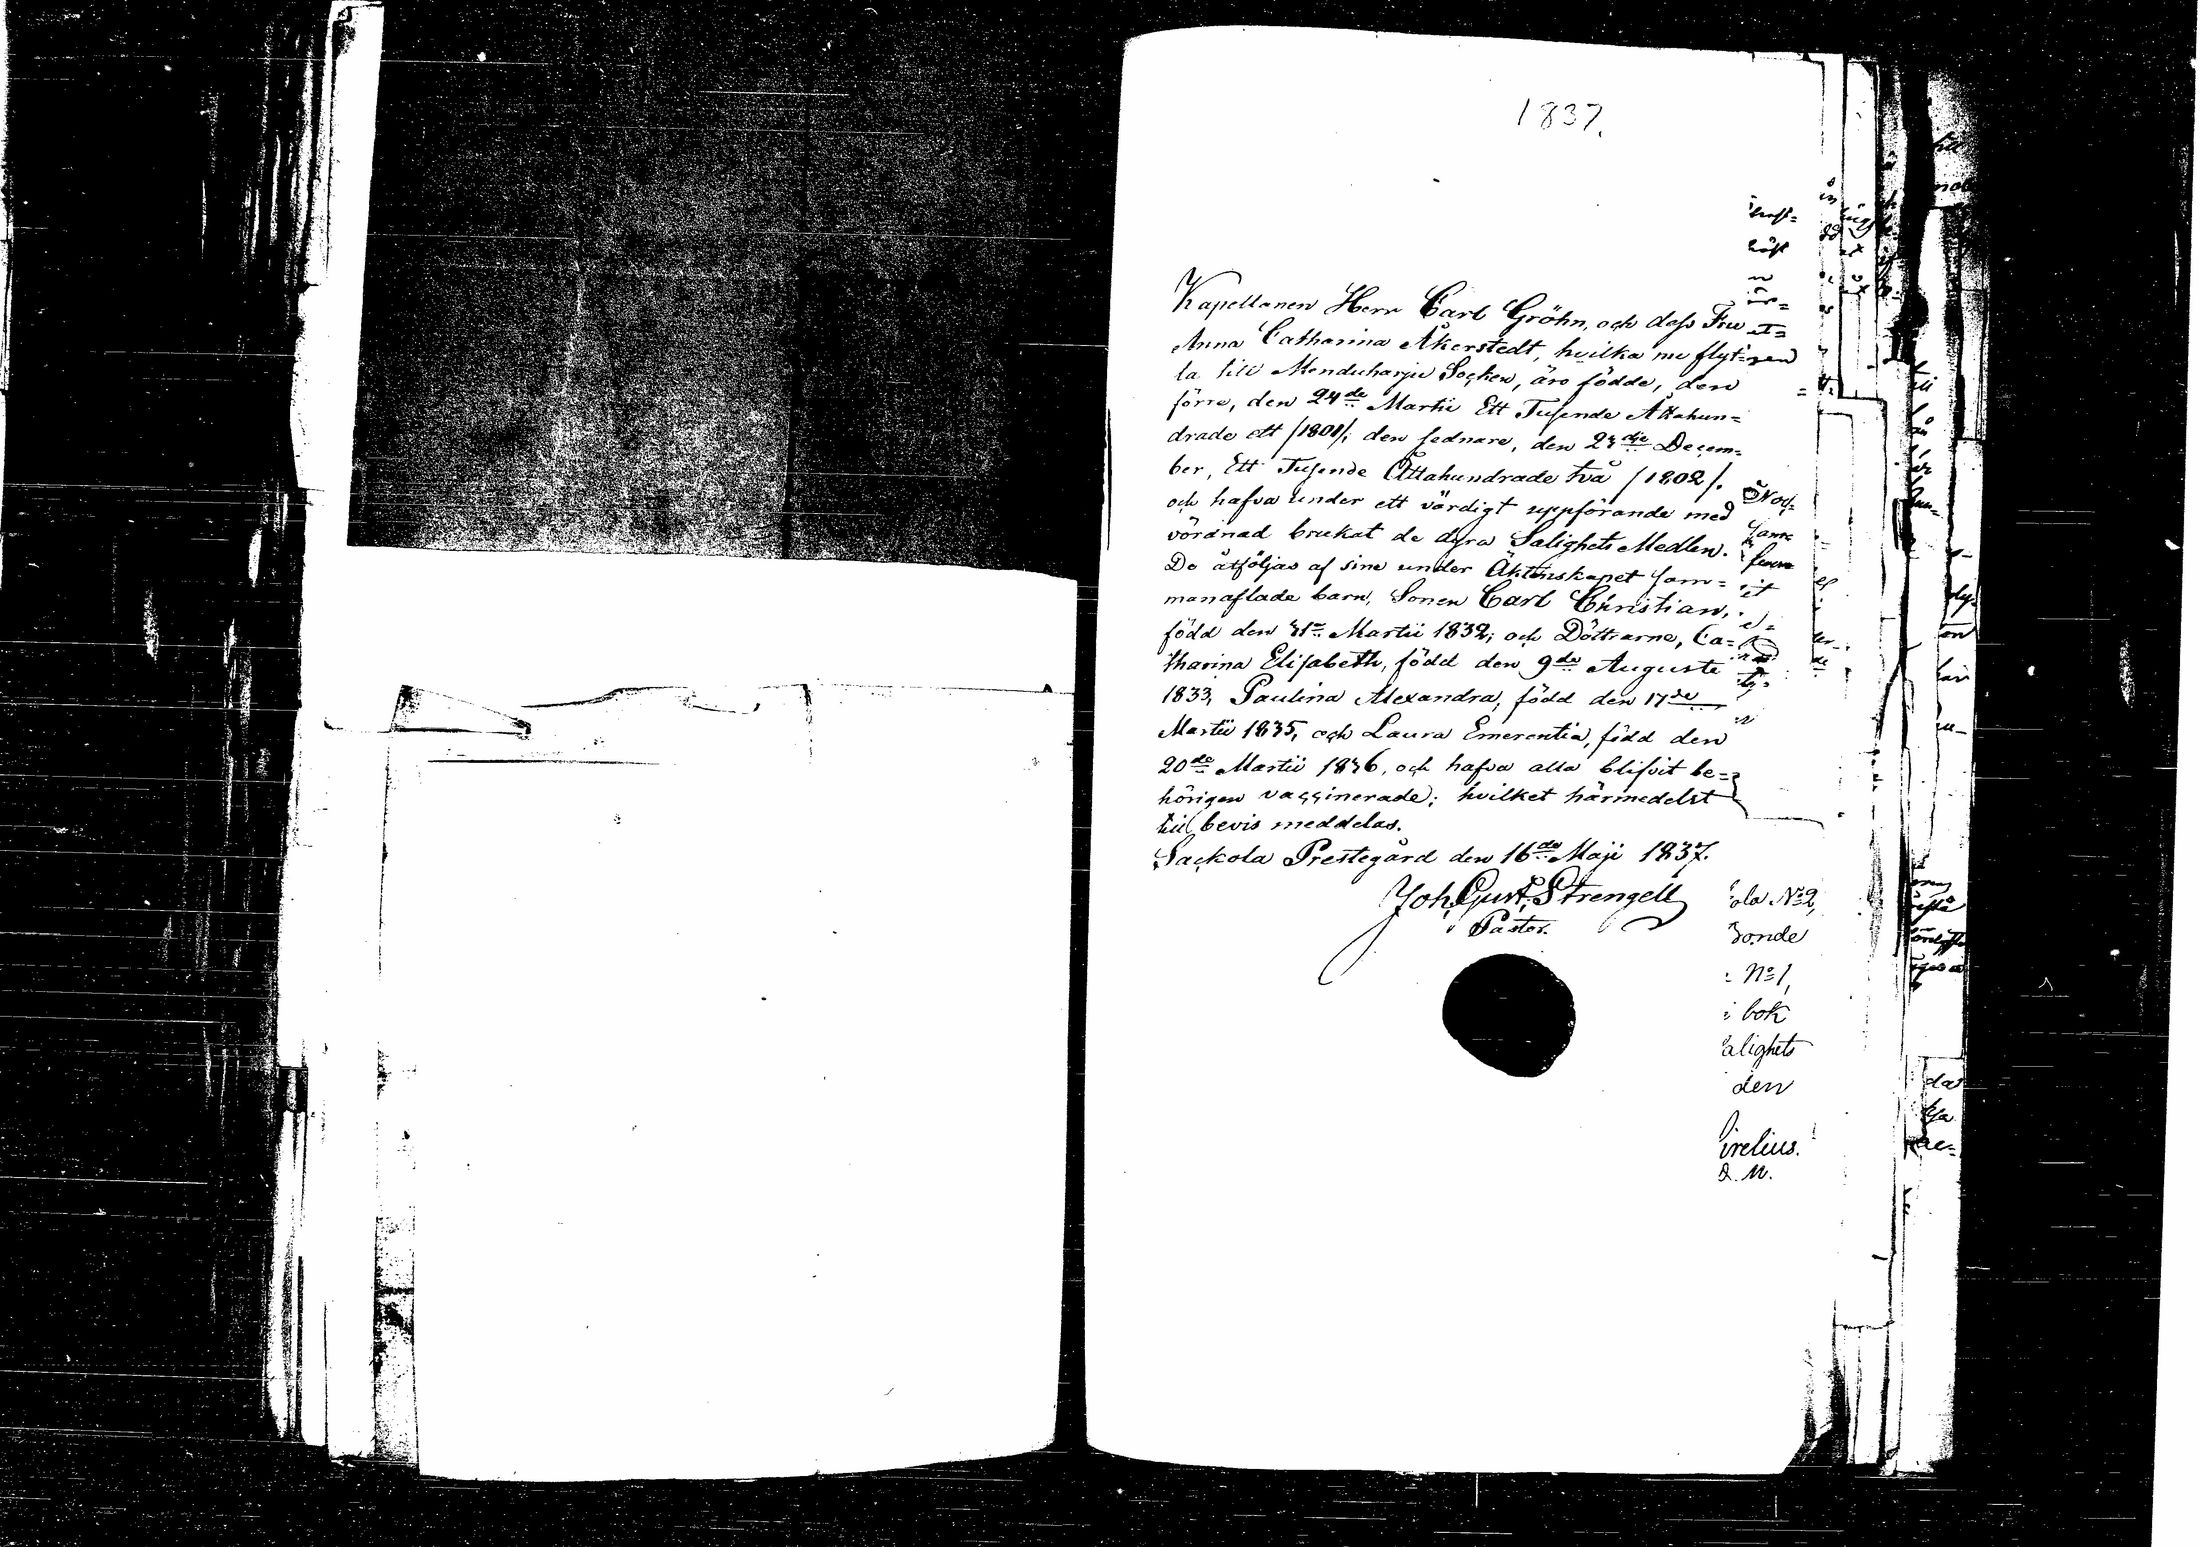 1837.
Kapellanen Herr Carl Gröhn, och dess Fru
Anna Catharina Åkerstedt, hvilka nu flyt-
ta till Menduharju Socken, äro födde, den
förre, den 24de Martii Ett Tusende Åttahun-
drade ett /1801/; den sednare, den 23dje Decem-
ber, Ett Tusende Åttahundrade två /1802/.
och hafva under ett värdigt uppförande med
vördnad brukat de dyra Salighets Medlen.
De åtföljas af sine under Äktenskapet sam-
manaflade barn, Sonen Carl Christian,
född den 31ste Martii 1832; och Döttrarne, Ca-
tharina Elisabeth, född den 9de Augusti
1833, Paulina Alexandra, född den 17de
Martii 1835, och Laura Emerentia, född den
20de Martii 1836, och hafva alla blifvit be-
hörigen vaccinerade; hvilket härmedelst
till bevis meddelas.
Sackola Prestegård den 16de Maji 1837.
Joh. Gust. Strengell
Pastor.
ola No 2,
onde
No 1,
bok
alighets
den
irelius.